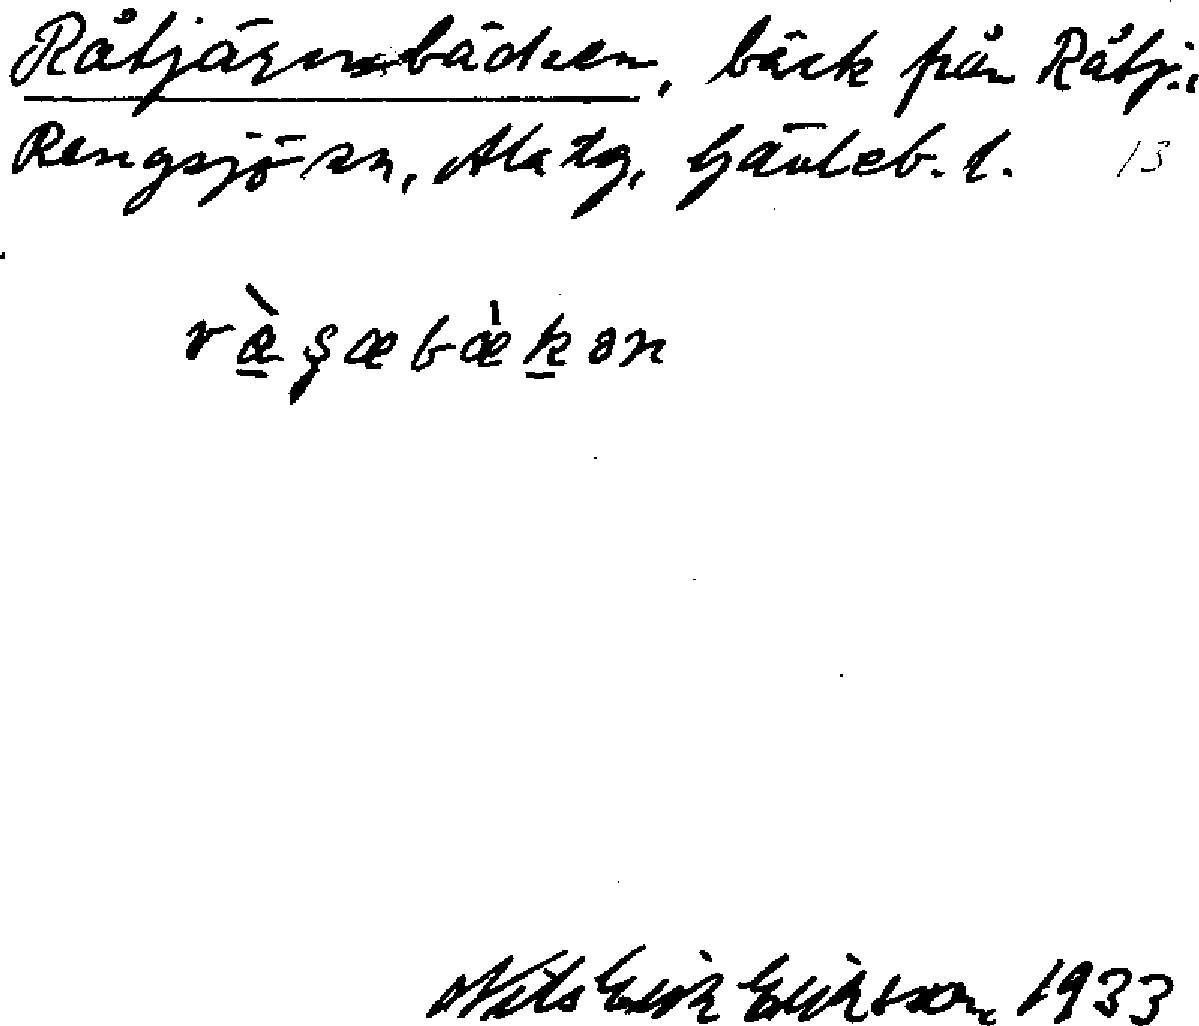 Råtjärnsbäcken, bäck från Råtj.,
Rengsjö sn, Ala tg, Gävleb. l. 13
ræ̀ʂæbæ̀kən
Nils Erik Eriksson, 1933